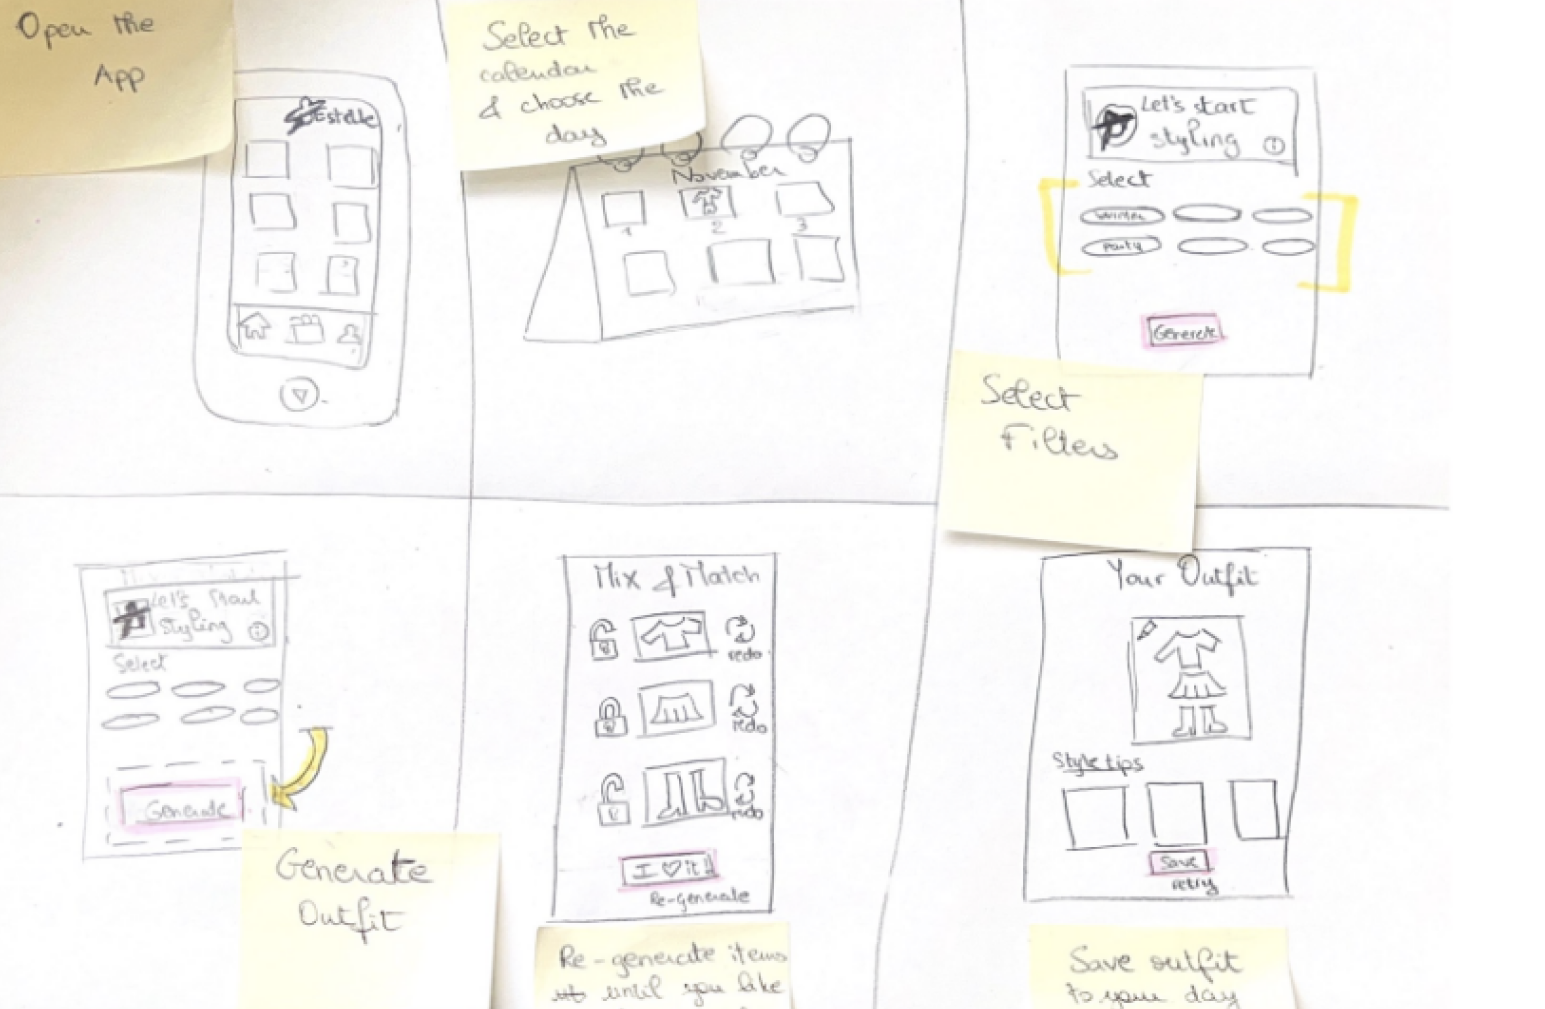 Open the
App
Estelle
Select the
calendar
& choose the
day
November
1
2
3
Let's start
styling
i
Select
Winter
Party
Generate
Select
Filters
Let's start
styling
i
Select
Generate
Generate
Outfit
Mix & Match
redo
redo
redo
I ♡ it!
Re-generate
Re-generate items
until you like
Your Outfit
Style tips
Save
retry
Save outfit
to your day